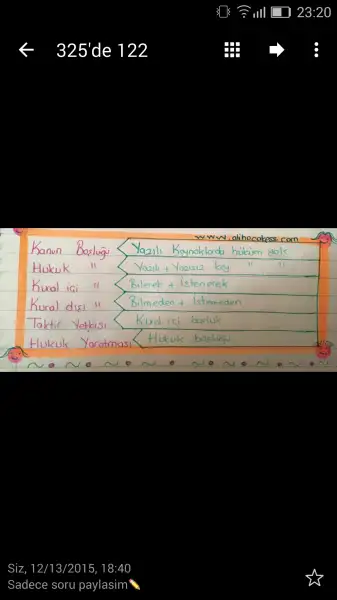 23:20
325'de 122
www.alihocakpss.com
Kanun Boşluğu Yazılı Kaynaklarda hüküm yok
Hukuk " Yazılı + Yazısız kay " "
Kural içi " Bilerek + İstenerek
Kural dışı " Bilmeden + İstemeden
Takdir Yetkisi Kural içi boşluk
Hukuk Yaratması Hukuk boşluğu
Siz, 12/13/2015, 18:40
Sadece soru paylasim